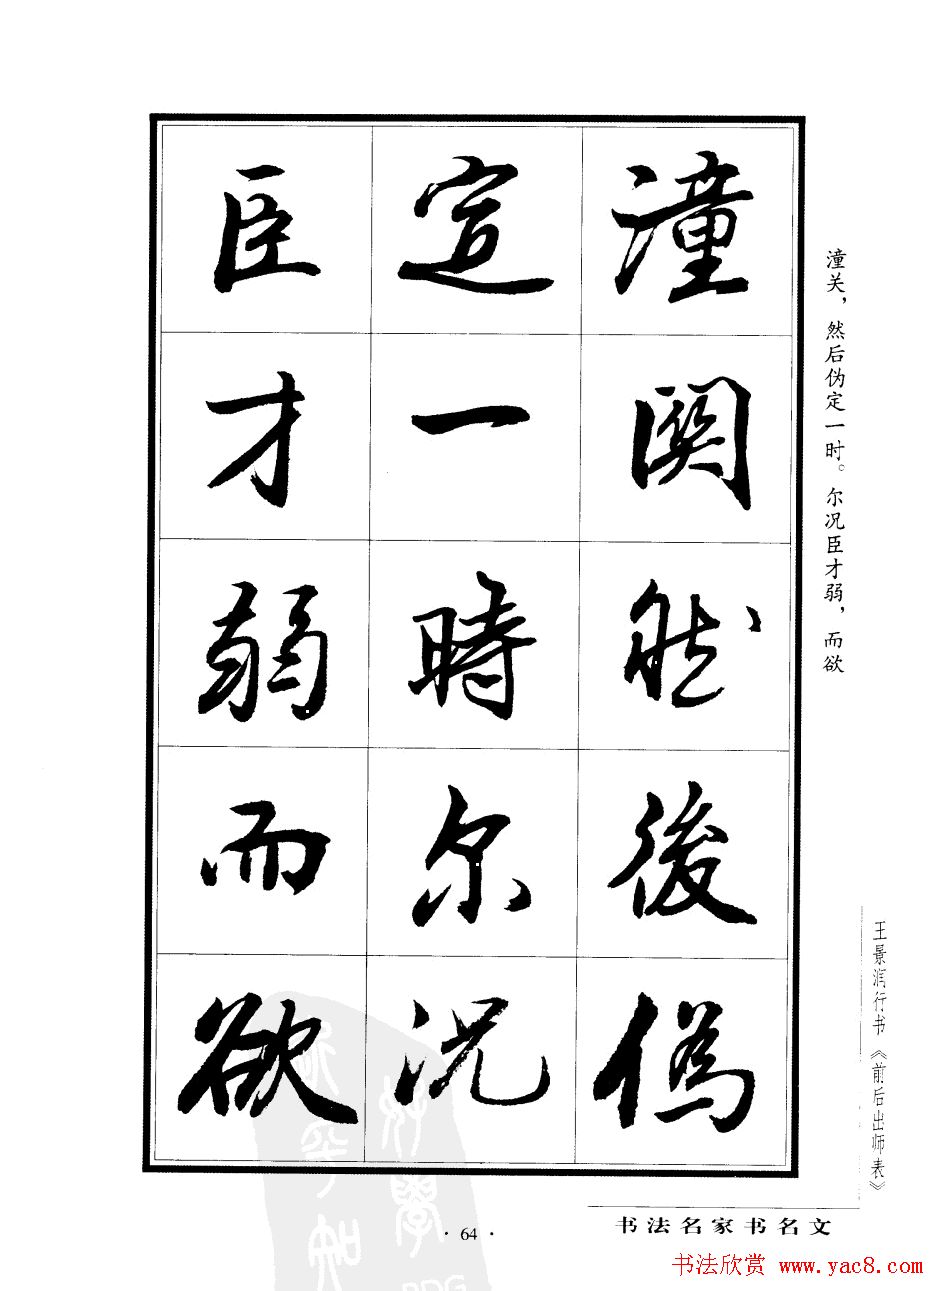 潼關然後偽
定一時尔况
臣才弱而欲
潼关，然后伪定一时。尔况臣才弱，而欲
王景润行书《前后出师表》
书法名家书名文
·64·
书法欣赏 www.yac8.com